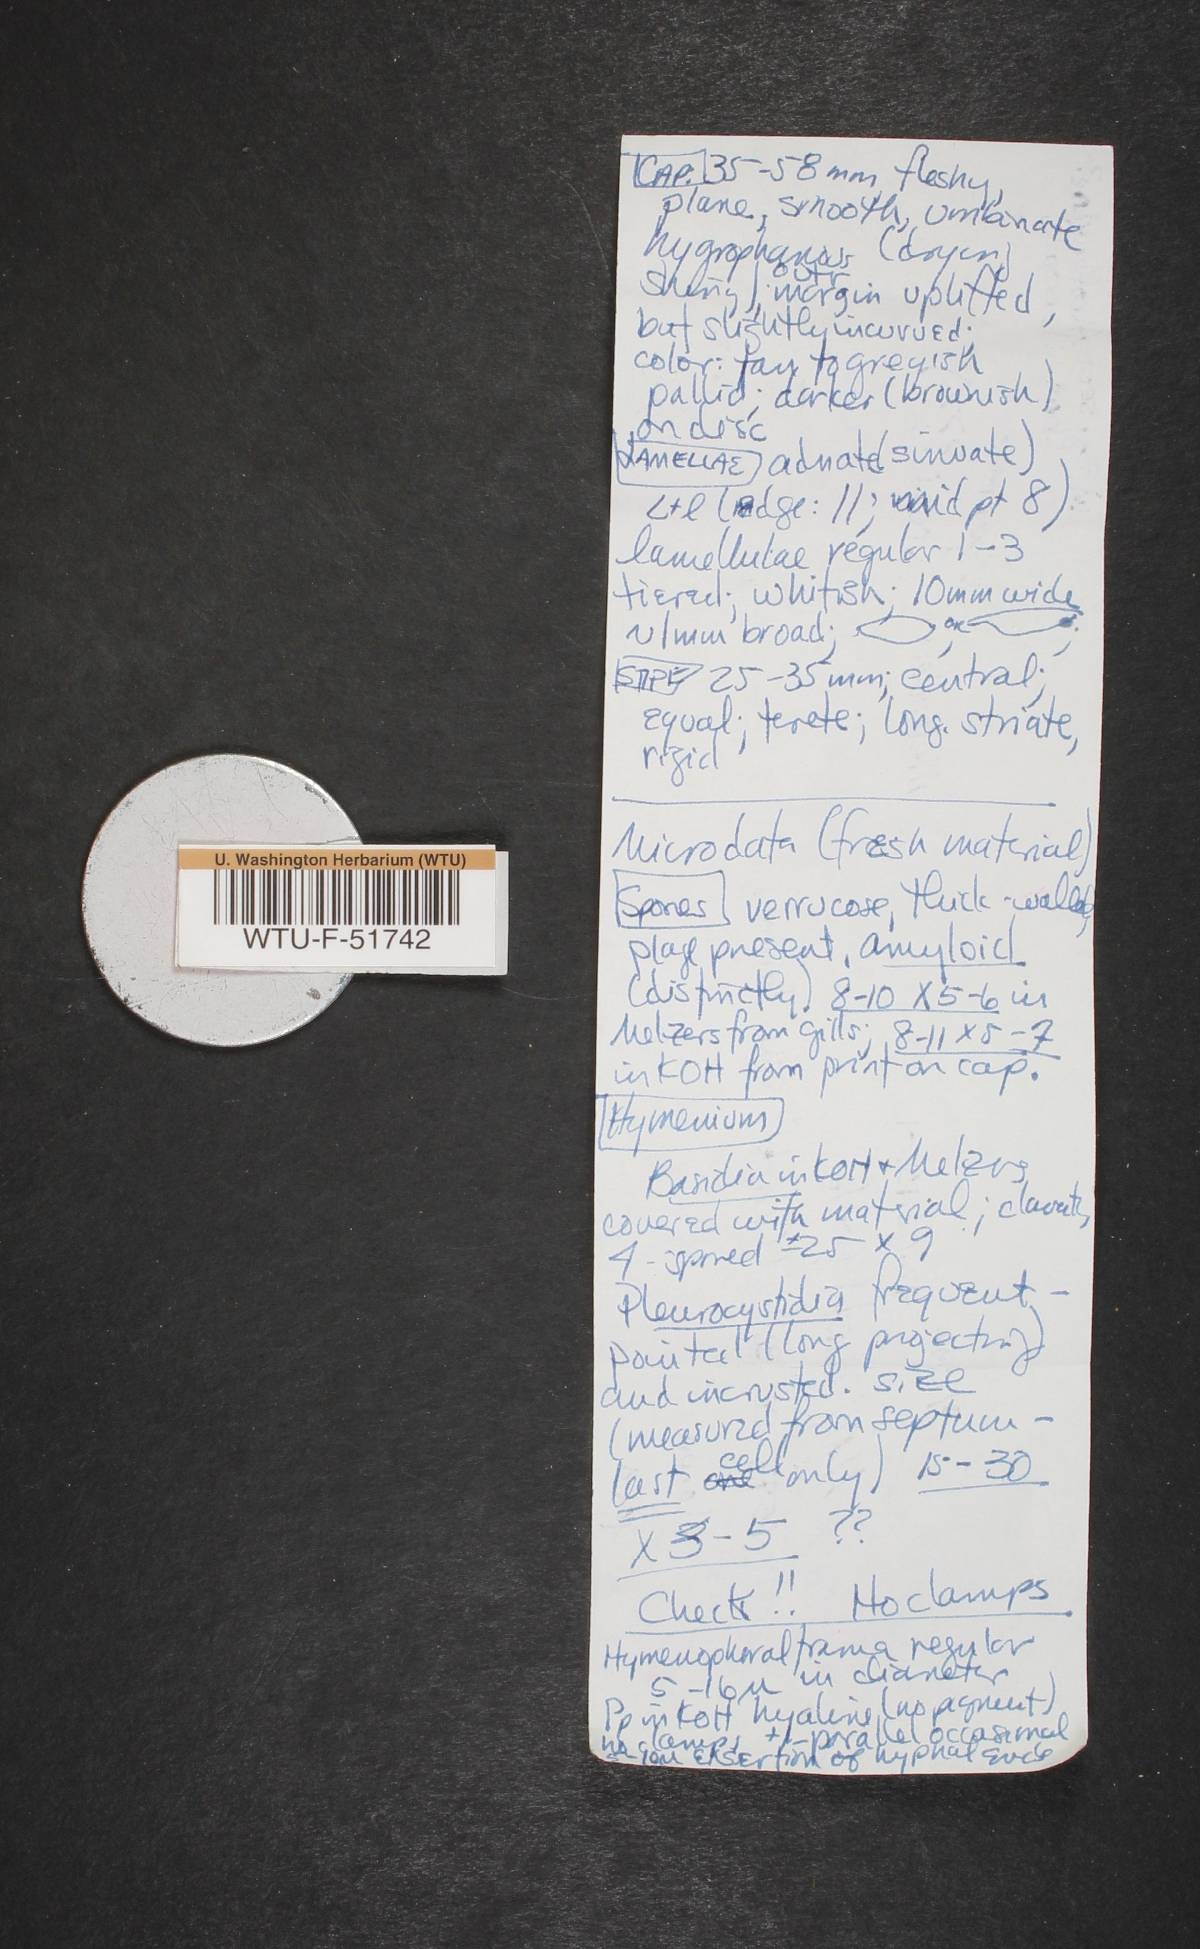 U. Washington Herbarium (WTU)
WTU-F-51742
CAP. 35-58 mm fleshy,
plane, smooth, umbonate
hygrophanous (dryin,
outr
shiny); margin uplifted,
but slightly incurved;
color: tan to greyish
pallid; darker (brownish)
on disc
LAMELLAE adnate (sinuate)
L+l (edge: 11; mid pt 8)
lamellulae regular 1-3
tiered; whitish; 10mm wide
~1mm broad; or ;
STIPE 25-35 mm; central;
equal; terete; long. striate,
rigid
Microdata (fresh material)
Spores verrucose, thick-walled,
plage present, amyloid
(distinctly) 8-10 X 5-6 in
Melzers from gills; 8-11 x 5-7
in KOH from print on cap.
Hymenium
Basidia in KOH + Melzers
covered with material; clavate,
4-spored ±25 x 9
Pleurocystidia frequent -
pointed (long projecting)
and incrusted. size
(measured from septum -
last cell only) 15-30
x 3-5 ??
Check!! No clamps
Hymenophoral trama regular
5-16µ in diameter
Pp in KOH hyaline (no pigment)
no clamps, +/- parallel occasional
of hyphal ends